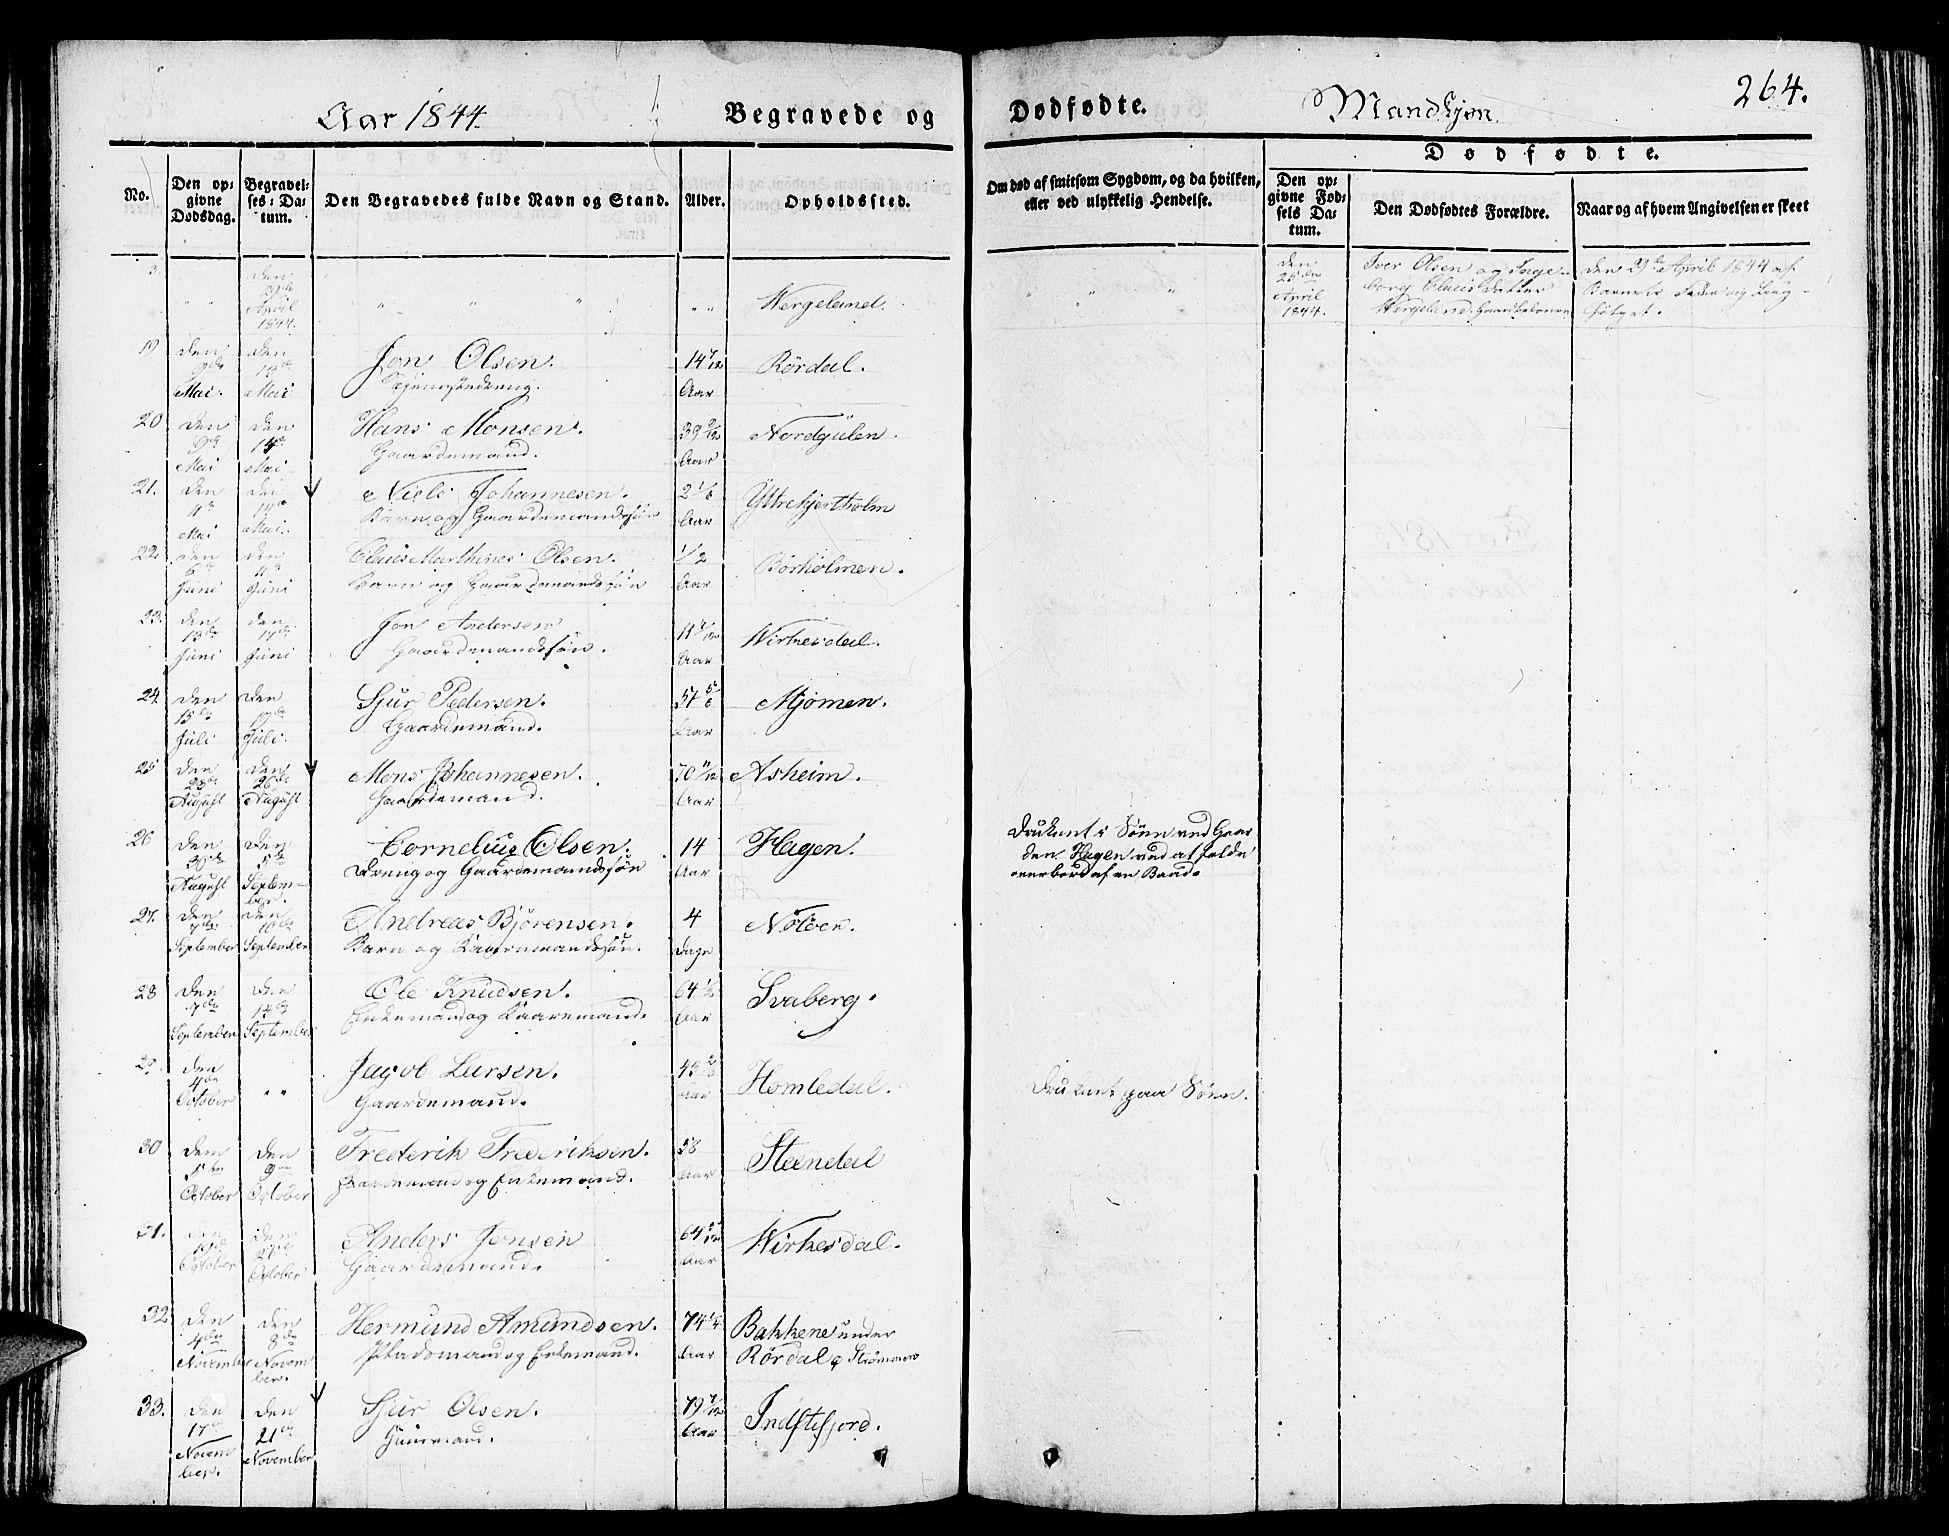 Aar 1844.
Begravede og
Dødfødte.
Mandkjøn.
264.
No.
Den op-
givne
Dødsdag.
Begravel-
ses-Da-
tum.
Den Begravedes fulde Navn og Stand.
Alder.
Opholdssted.
Om død af smitsom Sygdom, og da hvilken,
eller ved ulykkelig Hendelse.
Dødfødte.
Den op-
givne Fød-
sels Da-
tum.
Den Dødfødtes Forældre.
Naar og af hvem Angivelsen er skeet
3
den
29de
April
1844.
Wergeland.
den
25de
April
1844.
Iver Olsen og Inge-
borg Clausdatter
Wergeland
den 29de April 1844 af
Barnets Fader
19
den
9de
Mai.
den
Mai
Jon Olsen.
14 7/12
Aar
Rördal.
20
den
9de
Mai
den
14de
Mai
Hans Monsen.
Gaardemand.
39
Aar
Nordgülen.
21.
den
11te
Mai
den
17de
Mai.
Niels Johannesen.
Barn og Gaardemandssön
2 1/6
Aar
Yttrekjertholm
22.
den
6te
Juni
den
11te
Juni
Claus Marthines Olsen.
Barn og Gaardemandssön
1/2
Aar
Börholmen.
23.
den
13de
Juni
den
17de
Juni
Jon Andersen
Gaardemandssön.
11
Aar
Wirkesdal.
24
den
15de
Juli
den
19de
Juli.
Sjur Pedersen.
Gaardemand.
57 5/6
Aar
Mjömen.
25
den
23de
August
den
26de
August
Mons Johannesen.
Gaardemand.
70 11/12
Aar
Asheim.
26
den
30te
August
den
5te
Septem-
ber.
Cornelius Olsen.
Dreng og Gaardemandssön
14
Aar
Hagen.
Druknet i Söen ved Gaar
den Hagen ved at falde
overbord af en Baad.
27.
den
7de
September
den
10de
September
Andreas Björensen.
Barn og Kaaremandssön.
4
Dage
Nölöen.
28
den
7de
September
den
14de
September
Ole Knudsen.
Enkemand og Kaaremand.
64 1/2
Aar
Svaberg.
29.
den
4de
October
" "
Jacob Larsen.
Gaardemand.
43
Aar
Homledal.
Druknet paa Söen.
30
den
5te
October
den
9de
October
Frederik Frederiksen.
Gaardemand og Enkemand.
58
Aar
Steendal
31.
den
19de
October
den
October
Anders Jonsen
Gaardemand.
64
Aar
Wirkesdal.
32
den
4de
November
den
8de
Novem
ber.
Hermund Amundsen.
Pladsmand og Enkemand.
74 1/4
Aar
Bakkene under
Rördal
33.
den
17de
Novem
ber.
den
21de
November
Sjur Olsen.
79 7/12
Aar
Indstefjord.